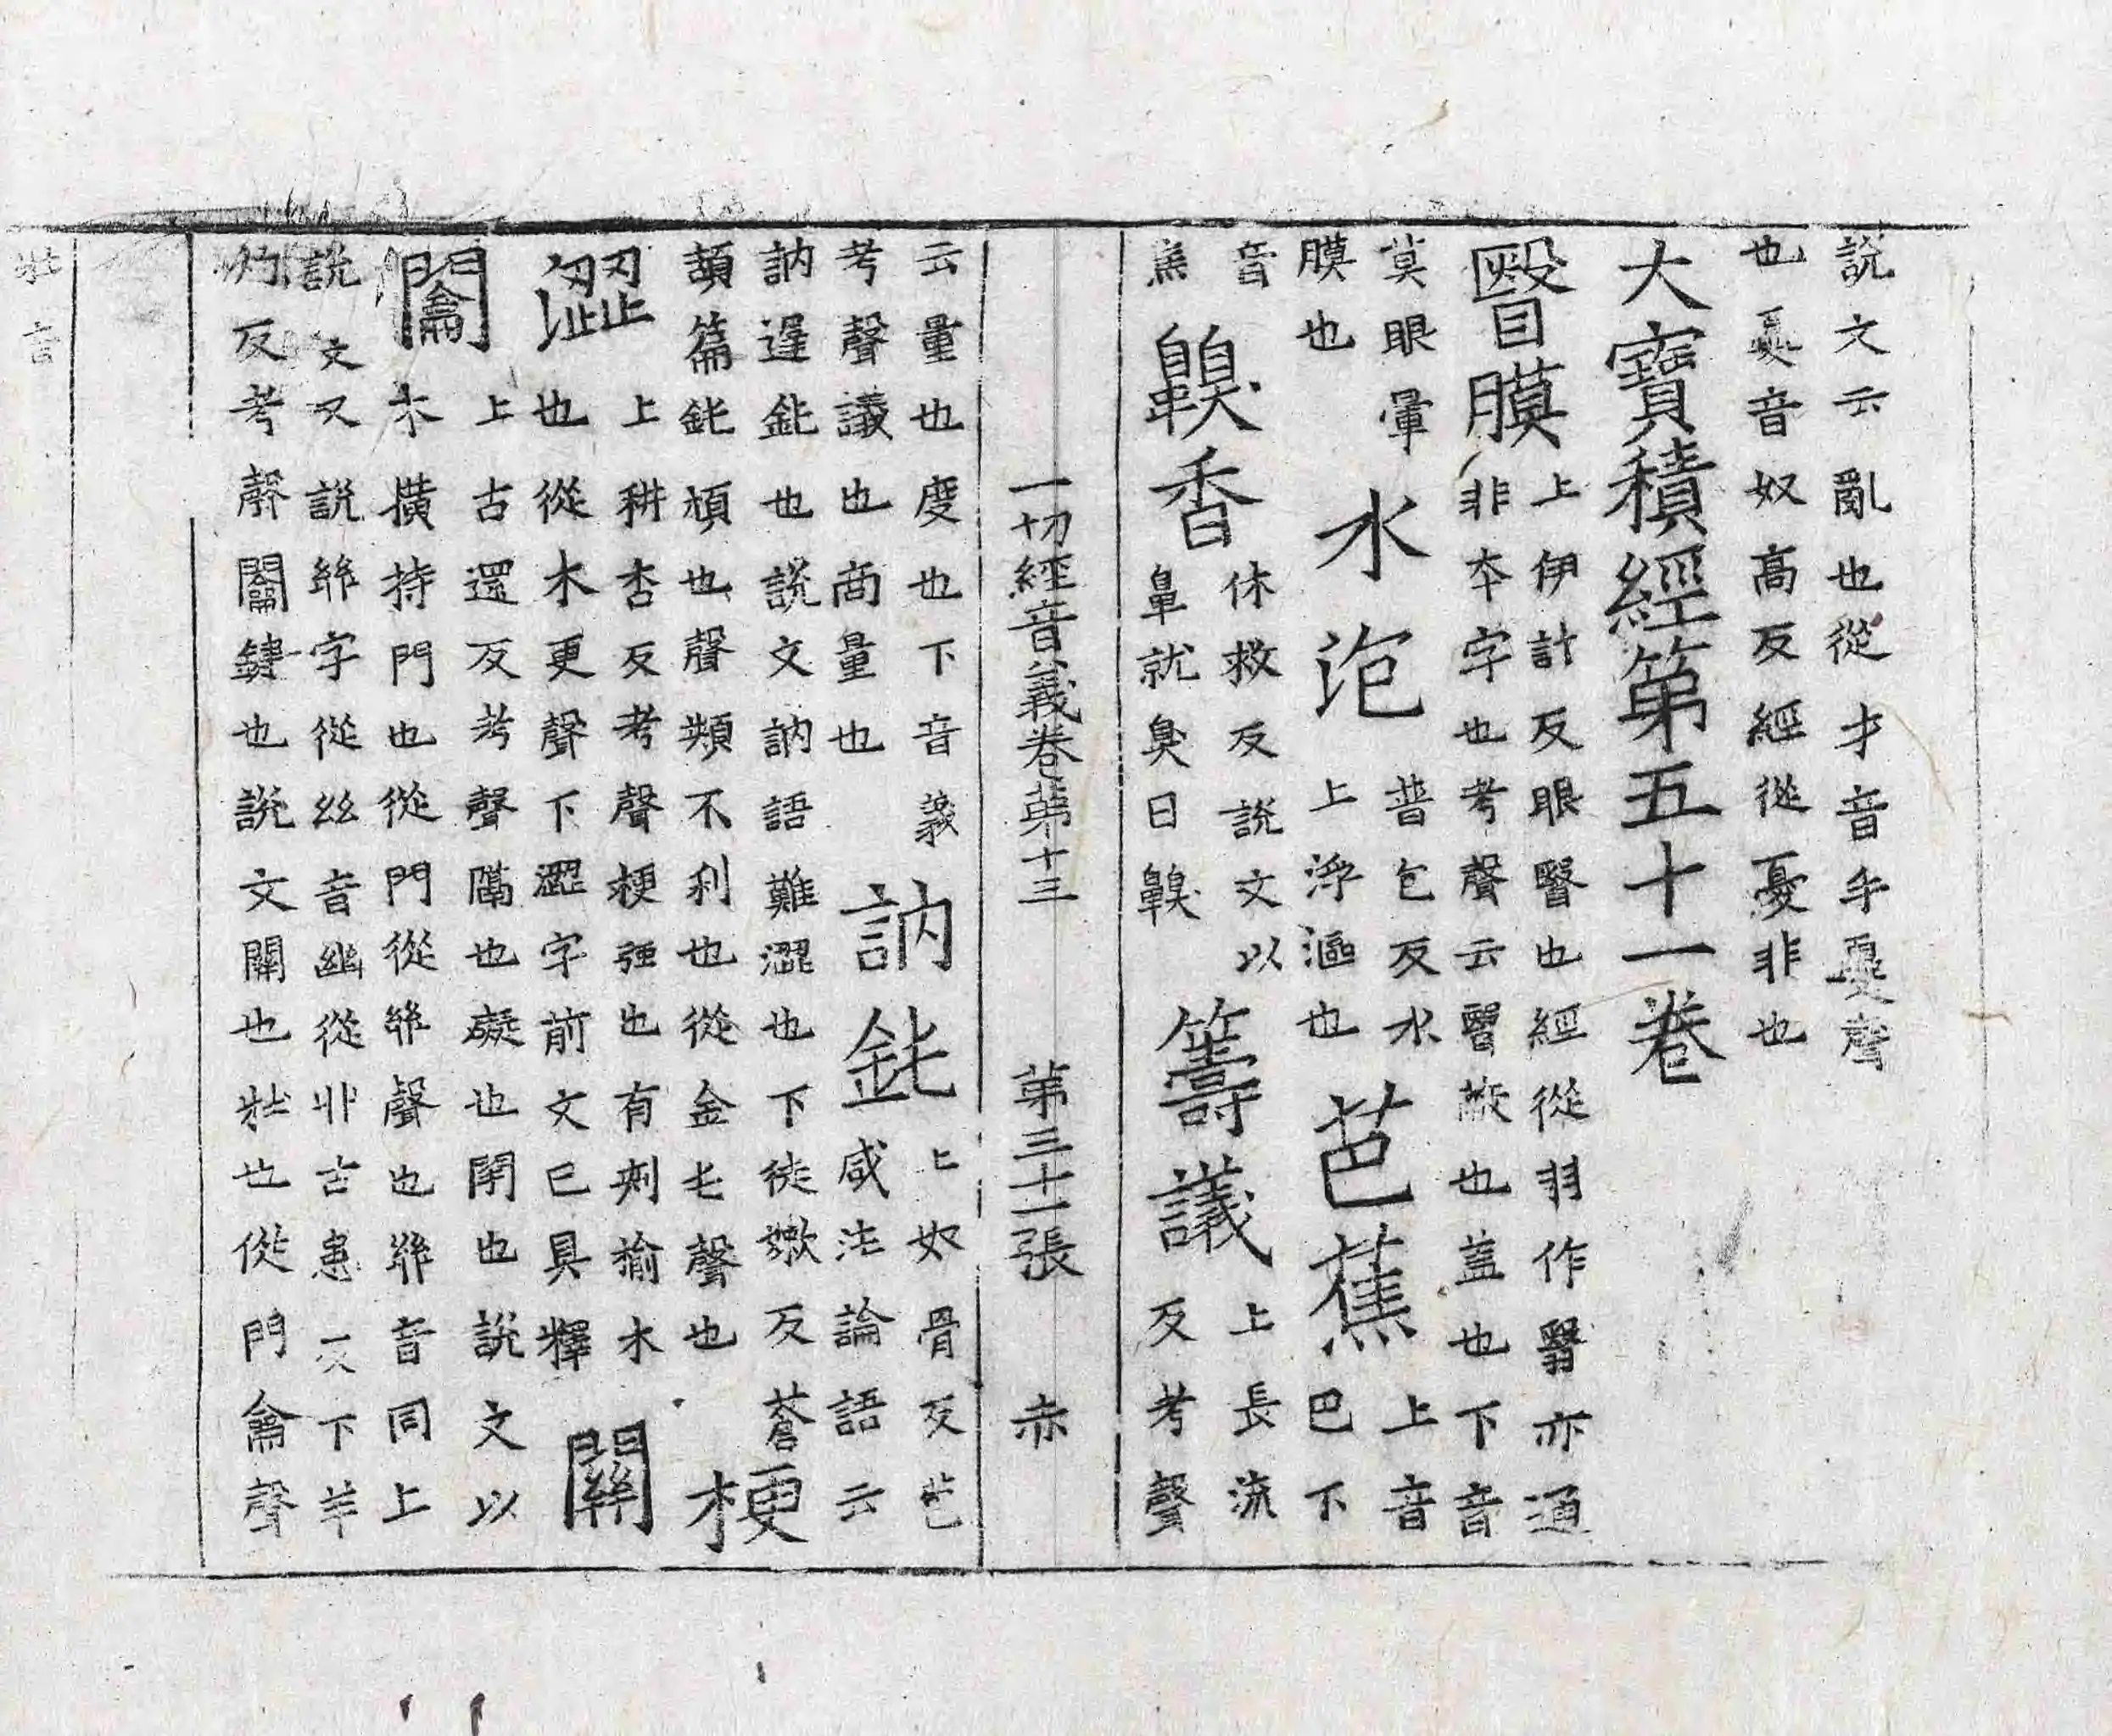 說文云亂也從才音手夒聲
也夒音奴高反經從憂非也
大寶積經第五十一卷
瞖膜上伊計反眼瞖也經從羽作翳亦通
非本字也考聲云瞖蔽也蓋也下音
莫眼暈
膜也
水泡普包反水
上浮漚也
芭蕉上音
巴下
音
焦
齅香休救反說文以
鼻就臭曰齅
籌議上長流
反考聲
一切經音義卷第十三 第三十一張 赤
云量也度也下音議
考聲議也商量也
訥鈍上如骨反苞
咸注論語云
訥遲鈍也說文訥語難澀也下徒嫩反蒼
頡篇鈍頑也聲類不利也從金屯聲也
梗
澀上耕杏反考聲梗强也有刺揄木
也從木更聲下澀字前文已具釋
關
𨷲上古還反考聲隔也礙也閉也說文以
木橫持門也從門從𢇇聲也𢇇音同上
說文又說𢇇字從𢆶音幽從丱古患反下羊
灼反考聲𨷲鍵也說文關也壯也從門龠聲
壯音